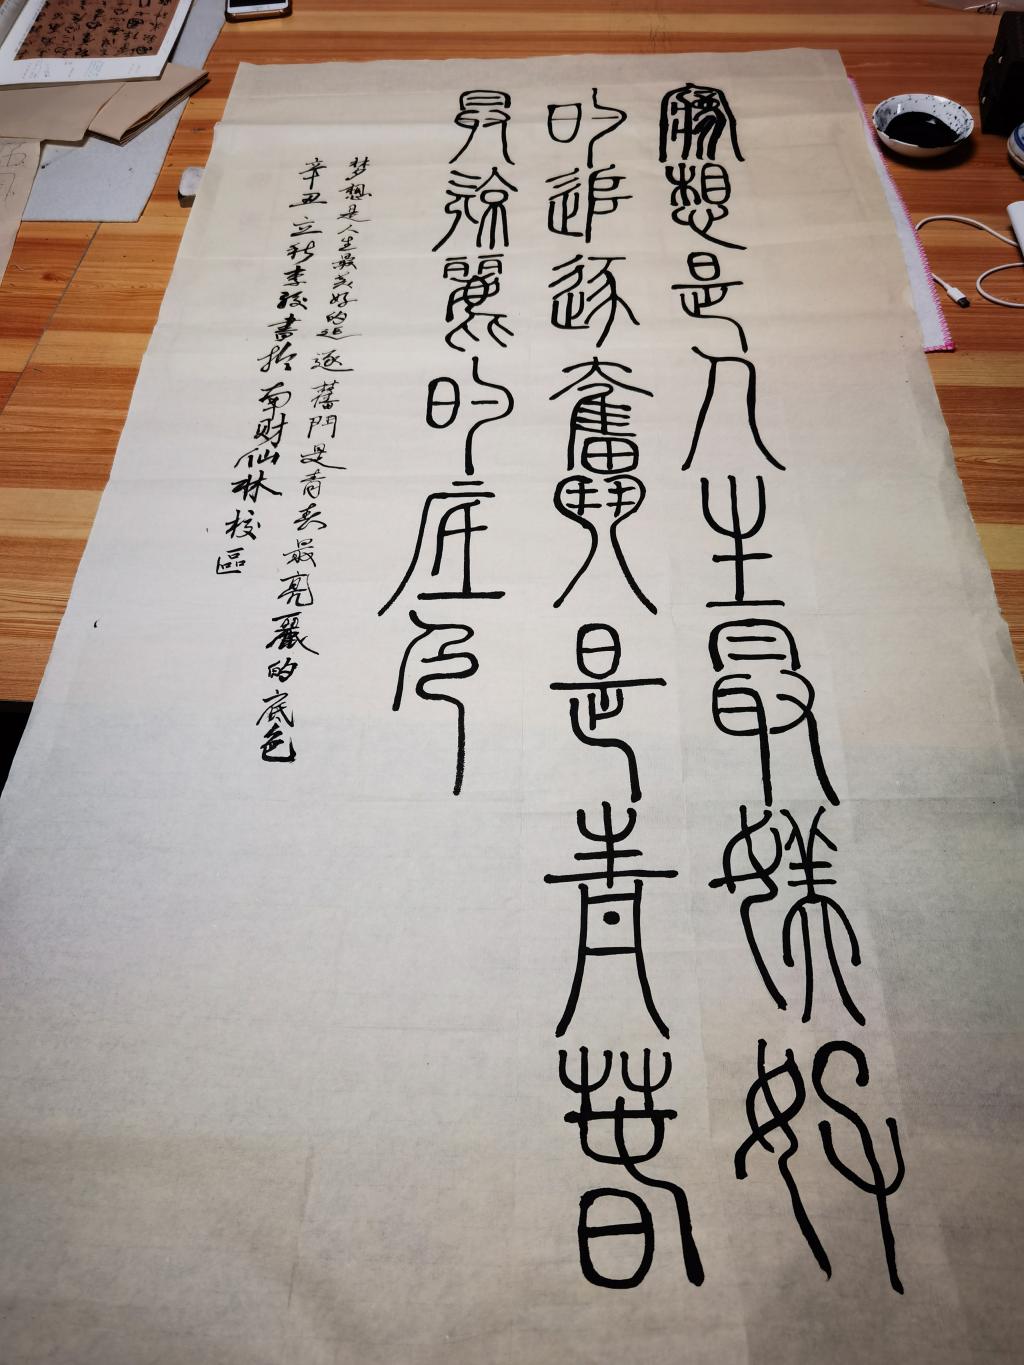 夢想是人生最媄好
的追逐奮鬥是青萅
最凉麗的底色
梦想是人生最美好的追逐奮鬥是青春最亮麗的底色
辛丑立秋李骏書於南财仙林校區